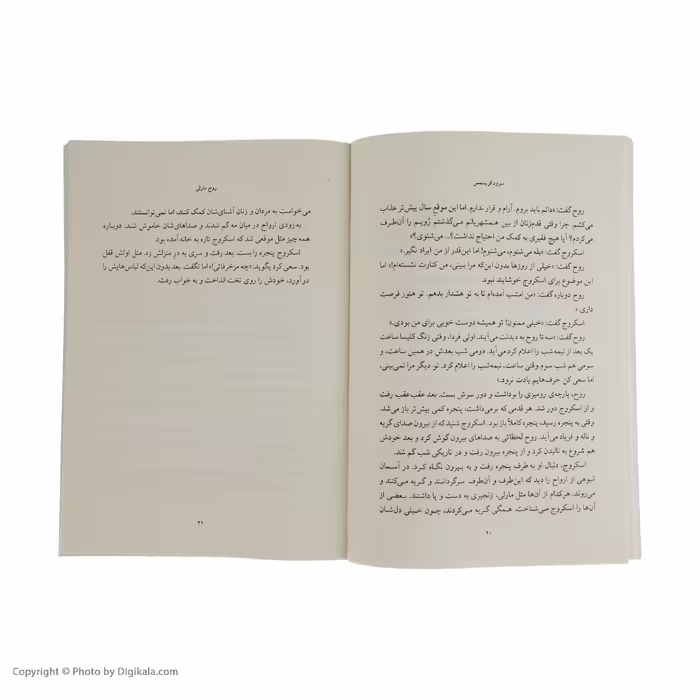 سرود کریسمس
روح گفت: «دانم باید بروم. آرام و قرار ندارم. اما این موقع سال بیش‌تر عذاب
می‌کشم. چرا وقتی قدم‌زنان از بین همشهریانم می‌گذشتم رُویم را آن‌طرف
می‌کردم؟ آیا هیچ فقیری به کمک من احتیاج نداشت؟... می‌شنوی؟»
اسکروج گفت: «بله می‌شنوم، می‌شنوم! اما این‌قدر از من ایراد نگیر.»
روح گفت: «خیلی از روزها بدون این‌که مرا ببینی، من کنارت نشسته‌ام!» اما
این موضوع برای اسکروج خوشایند نبود.
روح دوباره گفت: «من امشب آمده‌ام تا به تو هشدار بدهم. تو هنوز فرصت
داری.»
اسکروج گفت: «خیلی ممنون! تو همیشه دوست خوبی برای من بودی.»
روح گفت: «سه تا روح به دیدنت می‌آیند. اولی فردا، وقتی زنگ کلیسا ساعت
یک بعد از نیمه‌شب را اعلام کرد می‌آید. دومی شب بعدش در همین ساعت، و
سومی هم شب سوم وقتی ساعت، نیمه‌شب را اعلام کرد. تو دیگر مرا نمی‌بینی،
اما سعی کن حرف‌هایم یادت نرود.»
روح، پارچه‌ی رومیزی را برداشت و دور سرش بست. بعد عقب‌عقب رفت
و از اسکروج دور شد. هر قدمی که برمی‌داشت، پنجره کمی بیش‌تر باز می‌شد.
وقتی به پنجره رسید، پنجره کاملاً باز بود. اسکروج شنید که از بیرون صدای گریه
و ناله و فریاد می‌آید. روح لحظاتی به صداهای بیرون گوش کرد و بعد خودش
هم شروع به نالیدن کرد و از پنجره بیرون رفت و در تاریکی شب گم شد.
اسکروج، دنبال او به طرف پنجره رفت و به بیرون نگاه کرد. در آسمان
انبوهی از ارواح را دید که این‌طرف و آن‌طرف سرگردانند و گریه می‌کنند و
می‌روند. هرکدام از آن‌ها مثل مارلی، زنجیری به دست و پا داشتند. بعضی از
آن‌ها را اسکروج می‌شناخت. همگی گریه می‌کردند، چون خیلی دل‌شان
۲۰
روح مارلی
می‌خواست به مردان و زنان آشنای‌شان کمک کنند، اما نمی‌توانستند.
به زودی ارواح در میان مه گم شدند و صداهای‌شان خاموش شد. دوباره
همه چیز مثل موقعی شد که اسکروج تازه به خانه آمده بود.
اسکروج پنجره را بست. بعد رفت و سری به در منزلش زد. مثل اولش قفل
بود. سعی کرد بگوید: «چه مزخرفاتی!» اما نگفت. بعد بدون این‌که لباس‌هایش را
درآورد، خودش را روی تخت انداخت و به خواب رفت.
۲۱
Copyright © Photo by Digikala.com